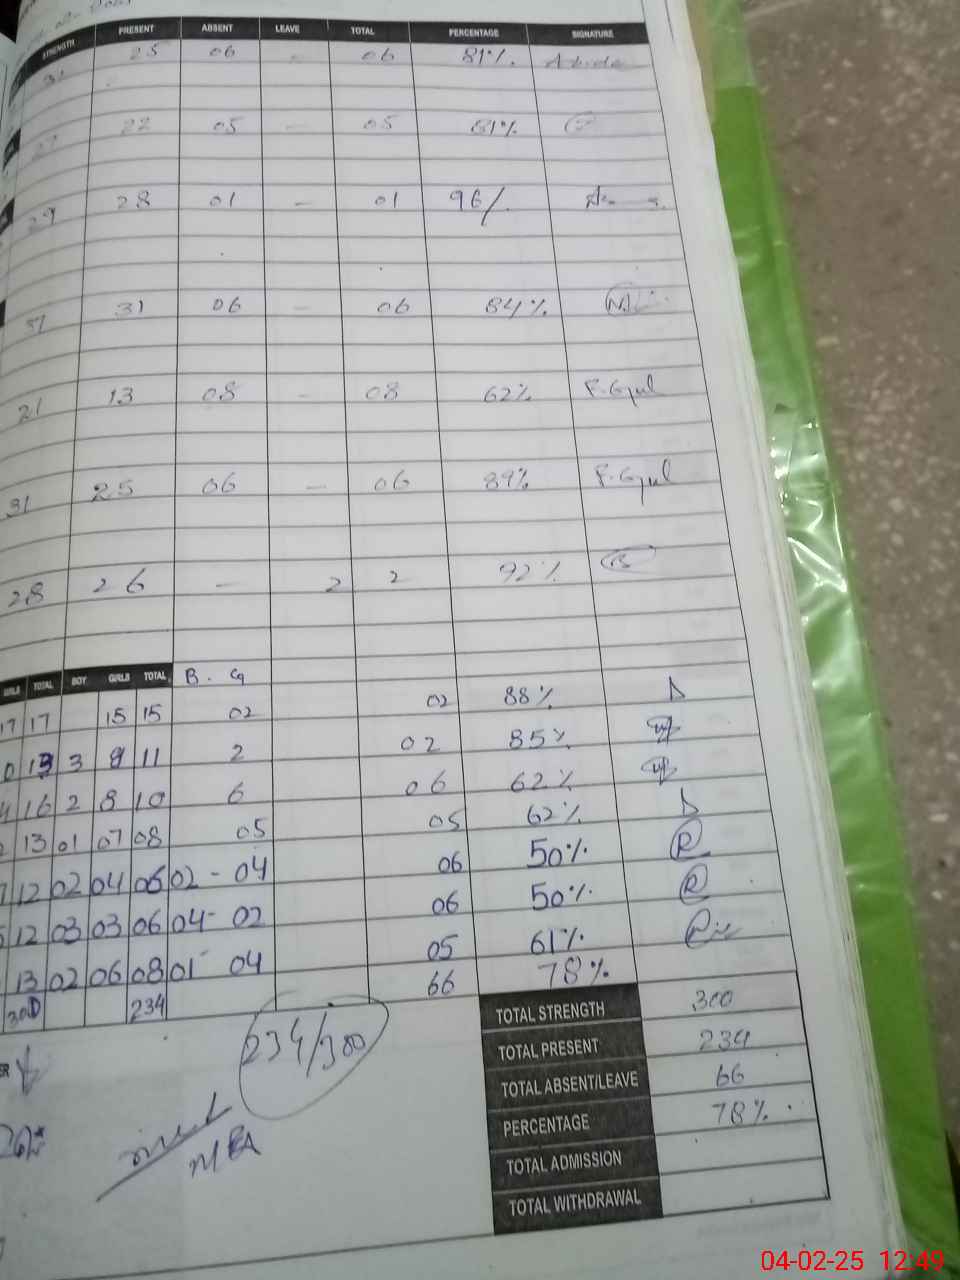 STRENGTH PRESENT ABSENT LEAVE TOTAL PERCENTAGE SIGNATURE
31 25 06 - 06 81%
27 22 05 - 05 81%
29 28 01 - 01 96%
37 31 06 - 06 84%
21 13 08 - 08 62% F.Gul
31 25 06 - 06 89% F.Gul
28 26 - 2 2 92%
GIRLS TOTAL BOY GIRLS TOTAL B. G
17 17 15 15 02 02 88%
13 3 8 11 2 02 85%
16 2 8 10 6 06 62%
13 01 07 08 05 05 62%
12 02 04 06 02 - 04 06 50% R
12 03 03 06 04 - 02 06 50% R
13 02 06 08 01 - 04 05 61%
300 234 66 78%
234/300
MEA
TOTAL STRENGTH 300
TOTAL PRESENT 234
TOTAL ABSENT/LEAVE 66
PERCENTAGE 78%.
TOTAL ADMISSION
TOTAL WITHDRAWAL
04-02-25 12:49